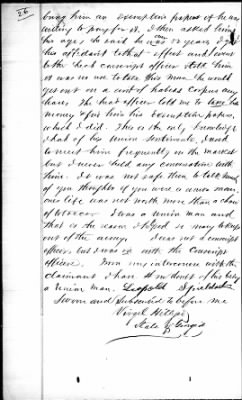 26
bring him an exemption papers if he was
willing to pay for it. I then asked him
his age. He said he was years I got
his affidavit to that effect and went
to the head conscript officer told him
it was no use to take this man he would
get out on a writ of habeas corpus any
how. The head officer told me to
money & give him his exemption papers,
which I did. This is the only knowledge
I had of his union sentiments, I used
to meet him frequently in the market
but I never held any conversation with
him. It was not safe then to talk
of you thoughts if you were a union man,
one life was not worth more than a chaw
of tobacco. I was a union man and
that is the reason I stayed so way to keep
out of the army. I was not a conscript
officer, but I was with the Conscript
officers. From my intercourse with the
claimant I have no doubt of his being
a Union man. Leopold
Sworn and Subscribed to before me
Virgil Hillyer
State of Georgia